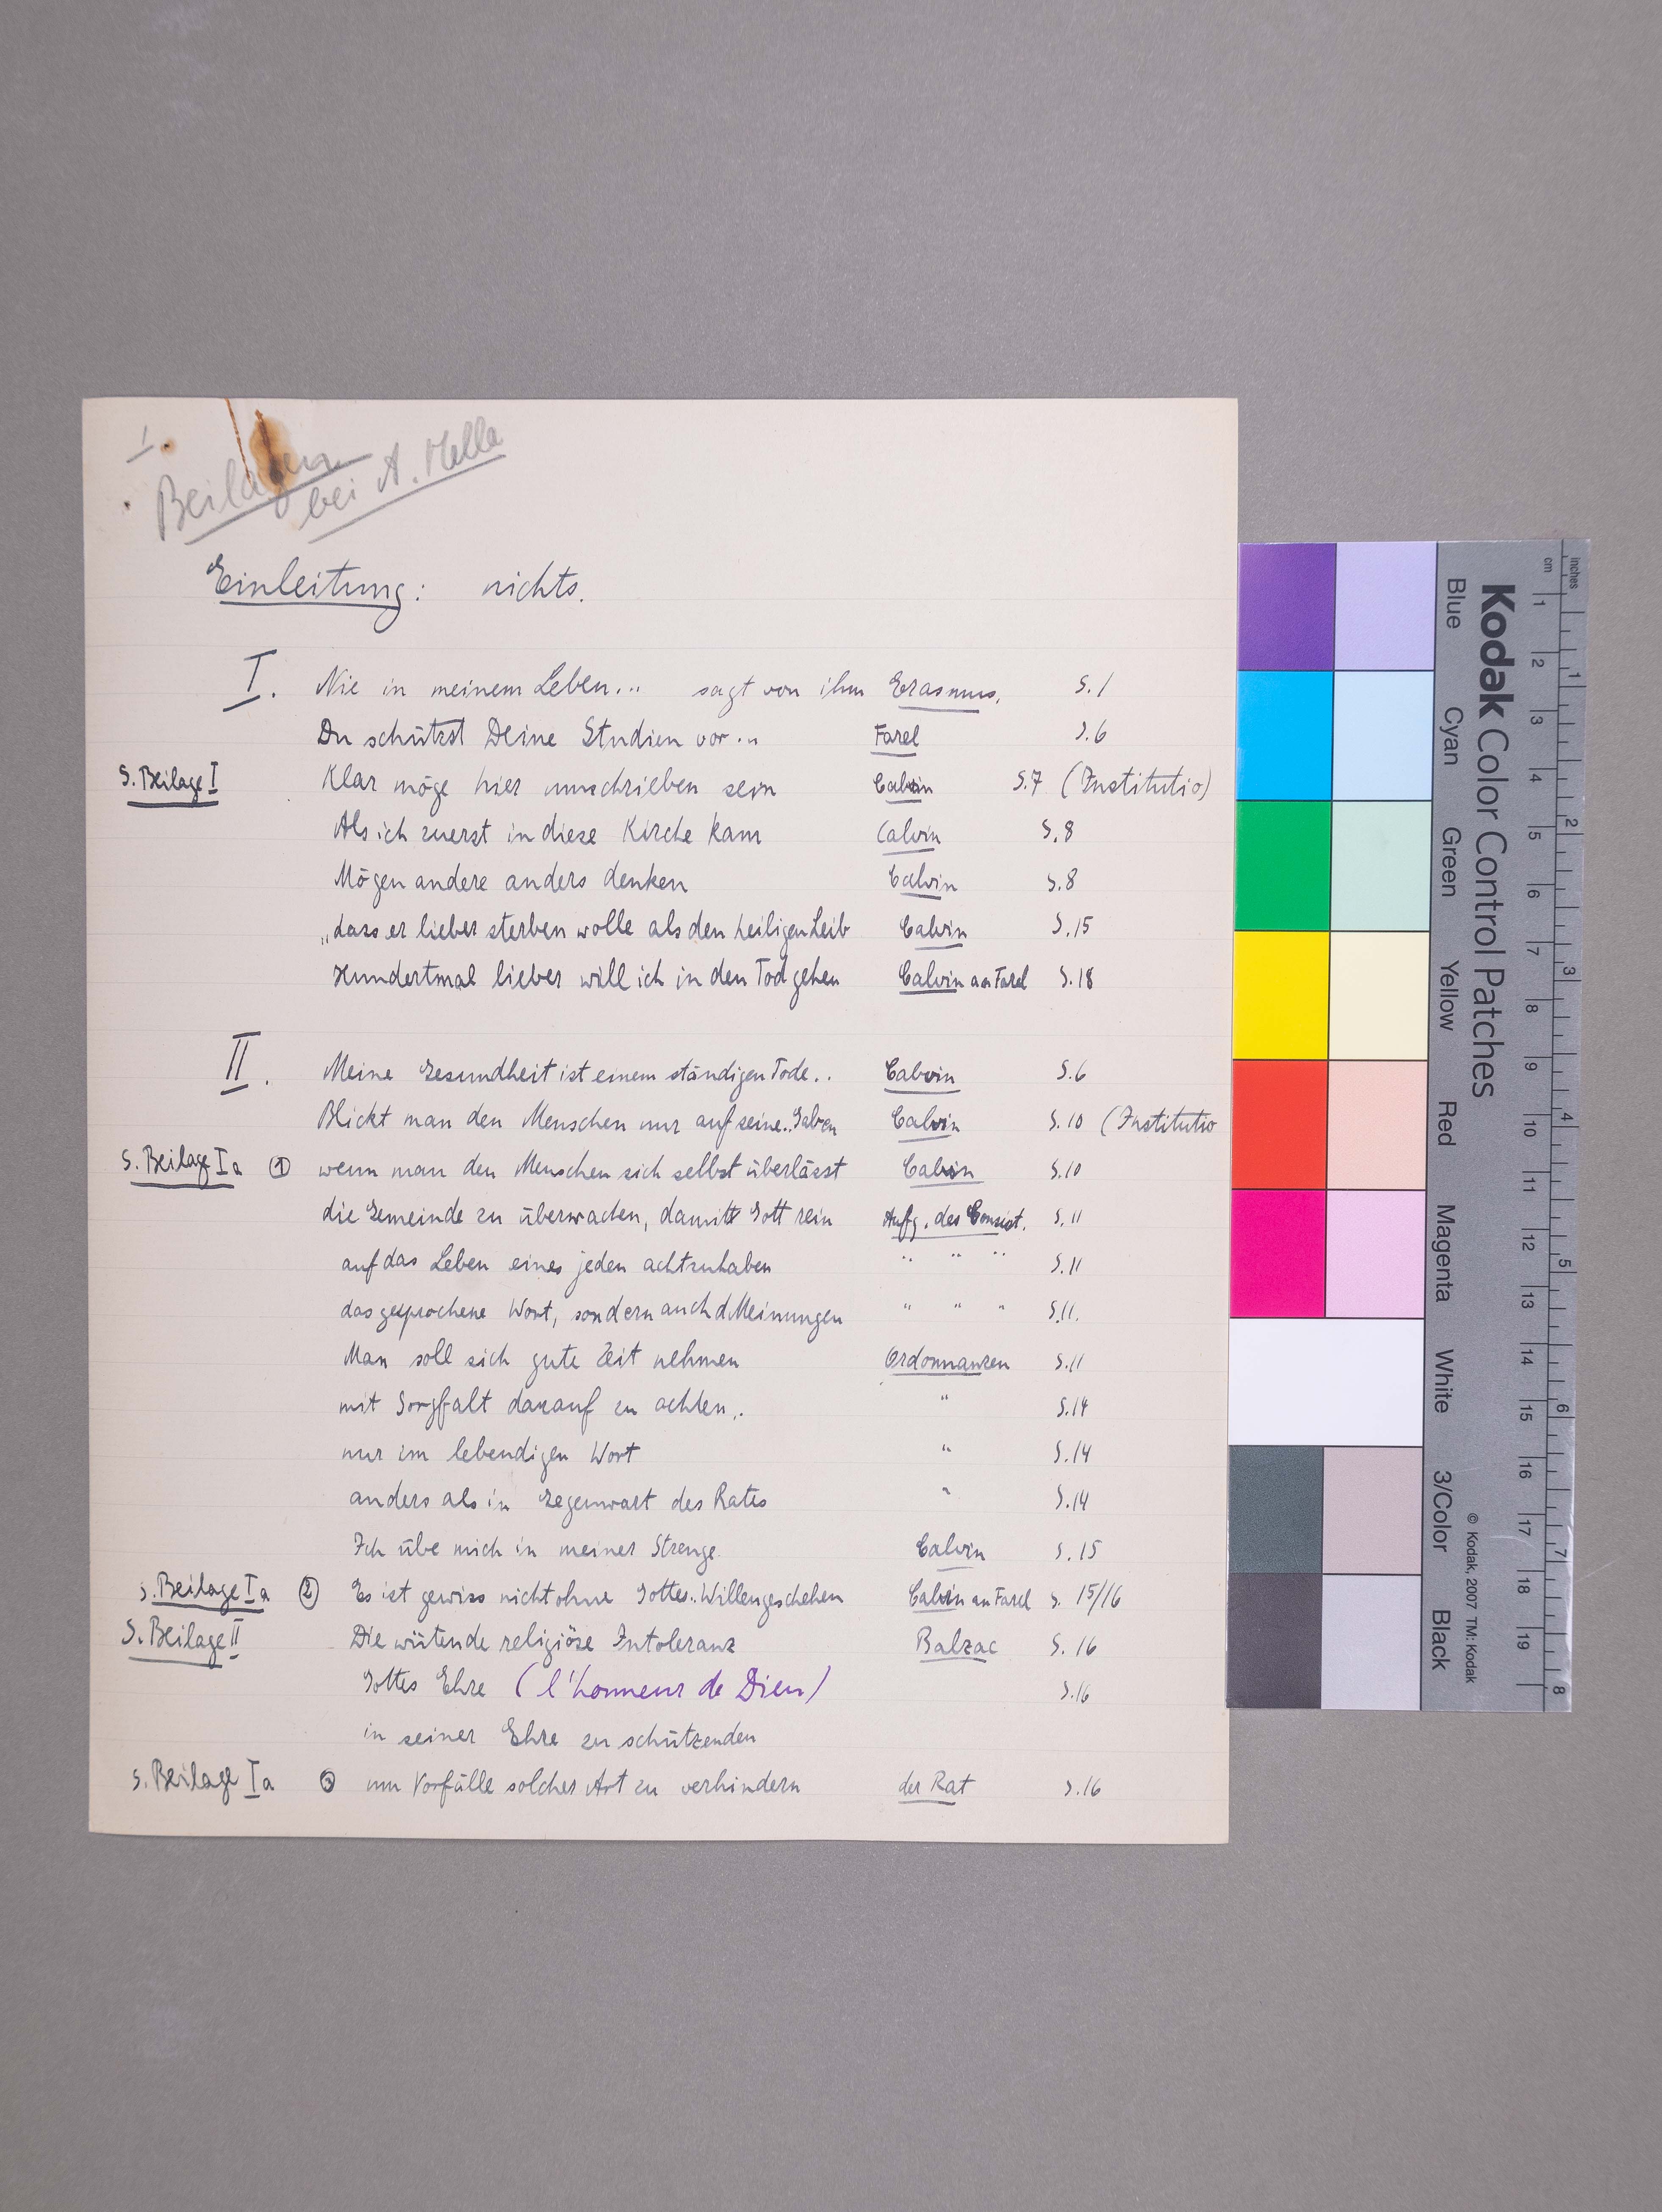 I.
Beilagen
bei A. Mella
Einleitung: nichts.
I. Nie in meinem Leben... sagt von ihm Erasmus, S.1
Du schützst Deine Studien vor... Farel S.6
S. Beilage I Klar möge hier umschrieben sein Calvin S.7 (Institutio)
Als ich zuerst in diese Kirche kam Calvin S.8
Mögen andere anders denken Calvin S.8
„dass er lieber sterben wolle als den heiligen Leib Calvin S.15
Hundertmal lieber will ich in den Tod gehen Calvin an Farel S.18
II. Meine Gesundheit ist einem ständigen Tode.. Calvin S.6
Blickt man den Menschen nur auf seine..Gaben Calvin S.10 (Institutio
S. Beilage Ia ① wenn man den Menschen sich selbst überlässt Calvin S.10
die Gemeinde zu überwachen, damit Gott rein Aufg. des Consist. S.11
auf das Leben eines jeden achtzuhaben " " " S.11
das gesprochene Wort, sondern auch d Meinungen " " " S.11.
Man soll sich gute Zeit nehmen Ordonnanzen S.11
mit Sorgfalt darauf zu achten.. " S.14
nur im lebendigen Wort " S.14
anders als in Gegenwart des Rates " S.14
Ich übe mich in meiner Strenge Calvin S.15
s. Beilage Ia ② Es ist gewiss nicht ohne Gottes..Willen geschehen Calvin an Farel S. 15/16
S. Beilage II Die wütende religiöse Intoleranz Balzac S. 16
Gottes Ehre (l'honneur de Dieu) S.16
in seiner Ehre zu schützenden
s. Beilage Ia ③ um Vorfälle solcher Art zu verhindern der Rat S.16
Kodak Color Control Patches
© Kodak, 2007 TM: Kodak
Blue Cyan Green Yellow Red Magenta White 3/Color Black
cm 1 2 3 4 5 6 7 8 9 10 11 12 13 14 15 16 17 18 19
inches 1 2 3 4 5 6 7 8